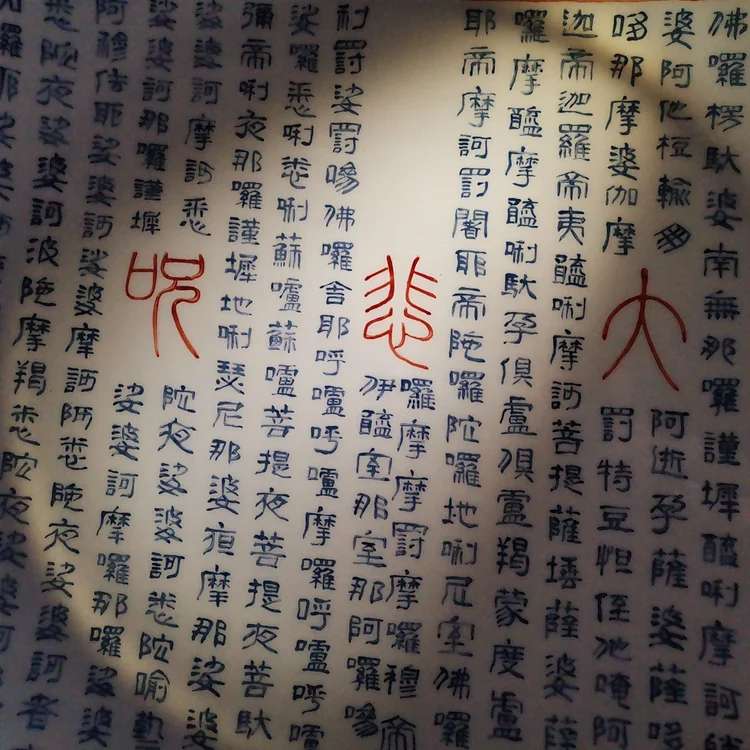 佛囉楞馱婆南無那囉謹墀醯唎摩訶
婆阿他桓輸朋
阿逝孕薩婆薩哆
哆那摩婆伽摩
大
罰特豆怛侄他唵阿
迦帝迦羅帝夷醯唎摩訶菩提薩埵薩婆薩
囉摩醯摩醯唎馱孕俱盧俱盧羯蒙度盧
耶帝摩訶罰闍耶帝陀囉陀囉地唎尼室佛囉
悲
囉摩摩罰摩囉穆帝
伊醯室那室那阿囉嘇
利罰娑罰嘇佛囉舍耶呼嚧呼嚧摩囉呼嚧呼嚧
娑囉悉唎悉唎蘇嚧蘇嚧菩提夜菩提夜菩馱
彌帝唎夜那囉謹墀地唎瑟尼那婆夜摩那娑婆
娑婆訶摩訶悉
呪
陀夜娑婆訶悉陀喻藝
娑婆訶那囉謹墀
娑婆訶摩囉那囉娑婆
阿穆佉耶娑婆訶娑婆摩訶阿悉陀夜娑婆訶
悉陀夜娑婆訶波陀摩羯悉陀夜娑婆訶者